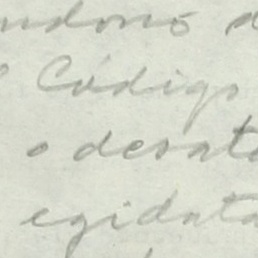 ndono d
Código
o desat
egidata